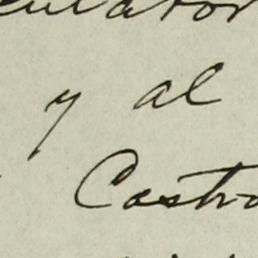 culator
y al
Castro